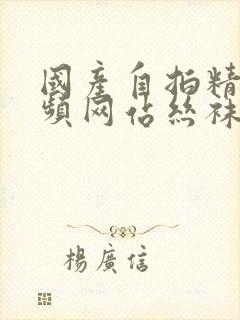 國產自拍精
頻网佔絲袜
楊廣信